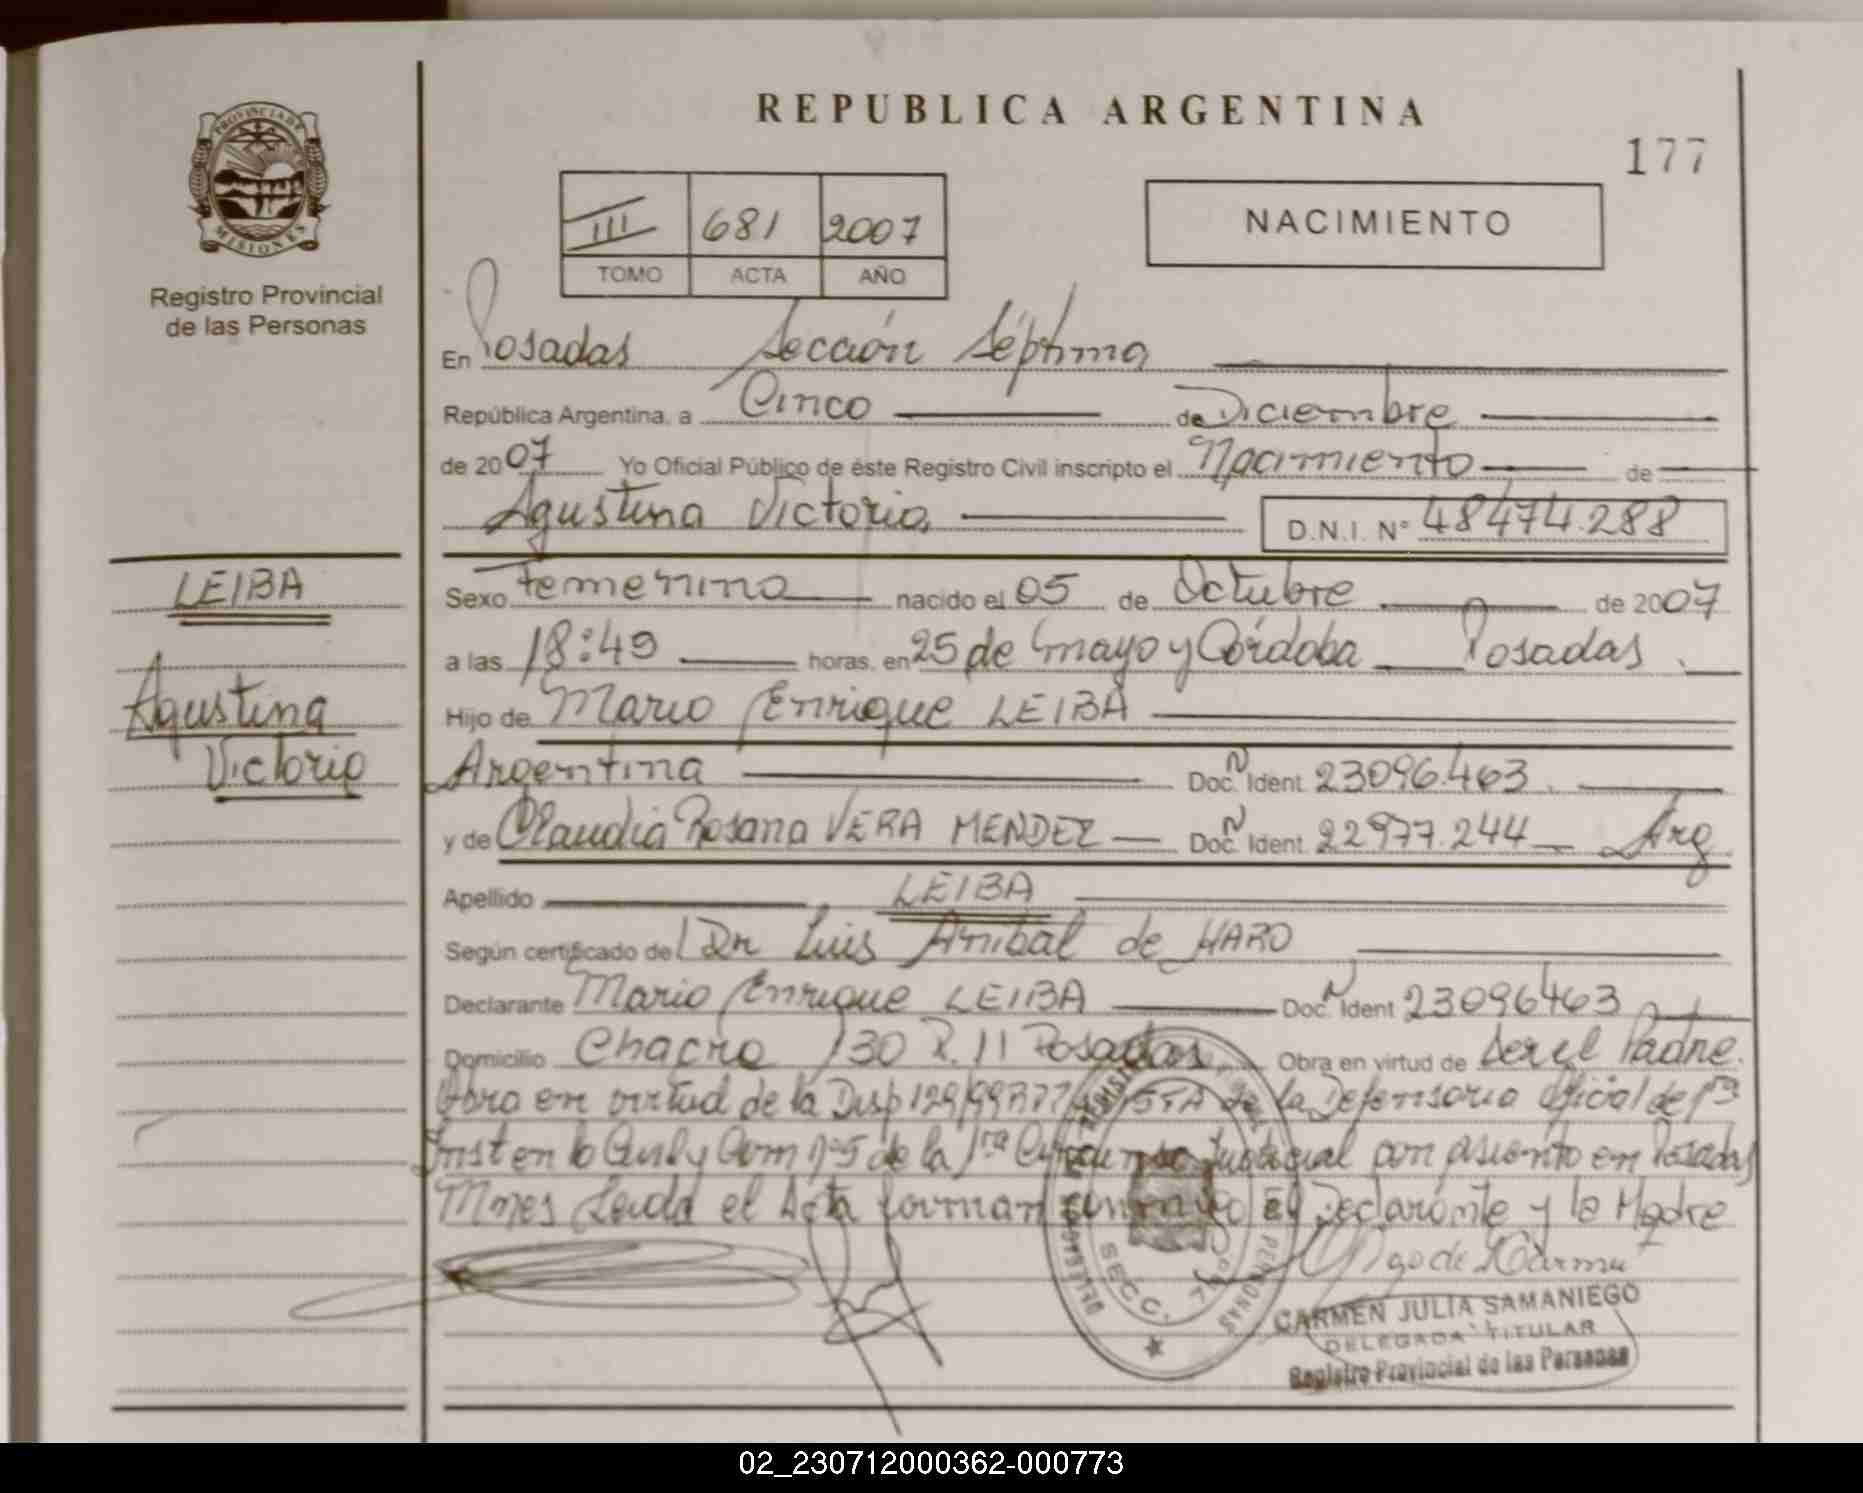 REPUBLICA ARGENTINA
177
PROVINCIA DE
MISIONES
Registro Provincial
de las Personas
III 681 2007
TOMO ACTA AÑO
NACIMIENTO
En Posadas Sección Séptima
República Argentina, a Cinco de Diciembre
de 2007 Yo Oficial Público de éste Registro Civil inscripto el Nacimiento de
Agustina Victoria D.N.I. Nº 48474.288
LEIBA
Agustina
Victoria
Sexo Femenino nacido el 05 de Octubre de 2007
a las 18:49 horas. en 25 de Mayo y Córdoba Posadas.
Hijo de Mario Enrique LEIBA
Argentina Doc. N Ident. 23096.463.
y de Claudia Rosana VERA MENDEZ Doc. N Ident. 22977.244 Arg
Apellido LEIBA
Según certificado del Dr Luis Anibal de HARO
Declarante Mario Enrique LEIBA Doc. N Ident 23096463
Domicilio Chacra 130 P. 11 Posadas Obra en virtud de ser el Padre.
Obra en virtud de la Disp 129/99 de la Defensoria Oficial de 1ra
Inst en lo Civil y Com Nº5 de la 1ra Judicial con asiento en Posadas
Mnes Leida el Acta forman conmigo El Declarante y la Madre
SECC. 7
PERSONAS
CARMEN JULIA SAMANIEGO
DELEGADA TITULAR
Registro Provincial de las Personas
02_230712000362-000773